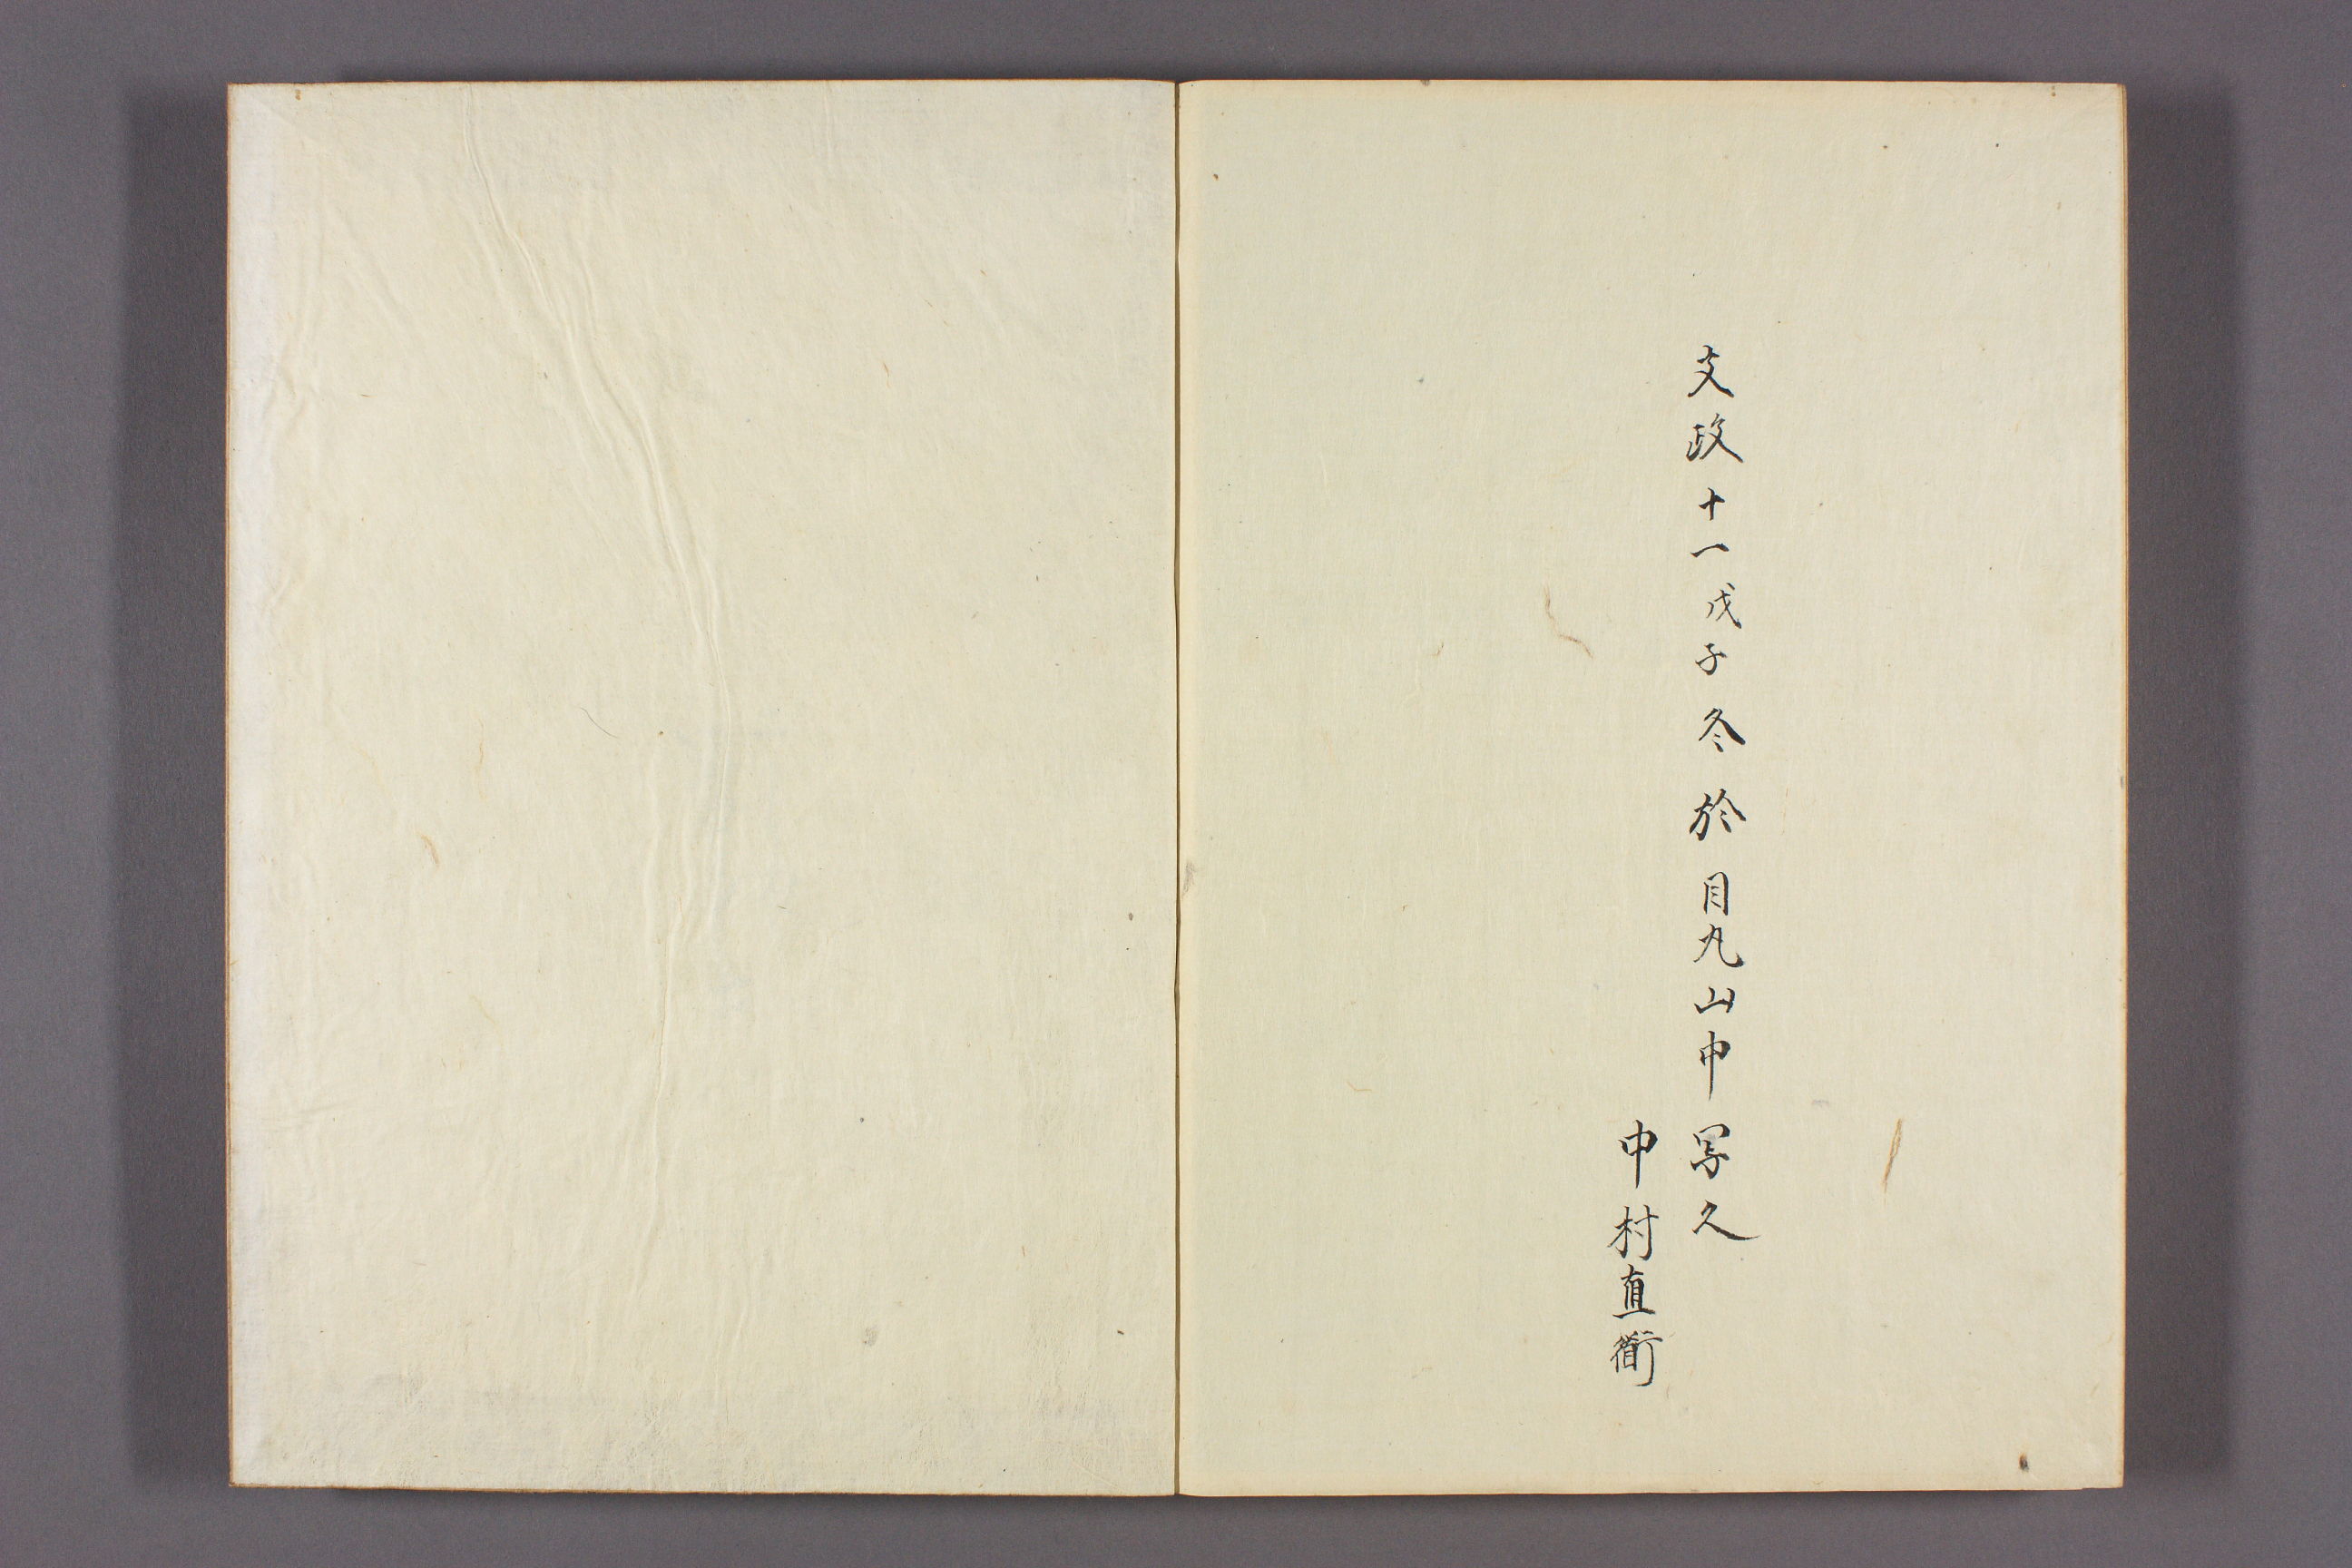 文政十一戊子冬於目丸山中写久
中村直衛